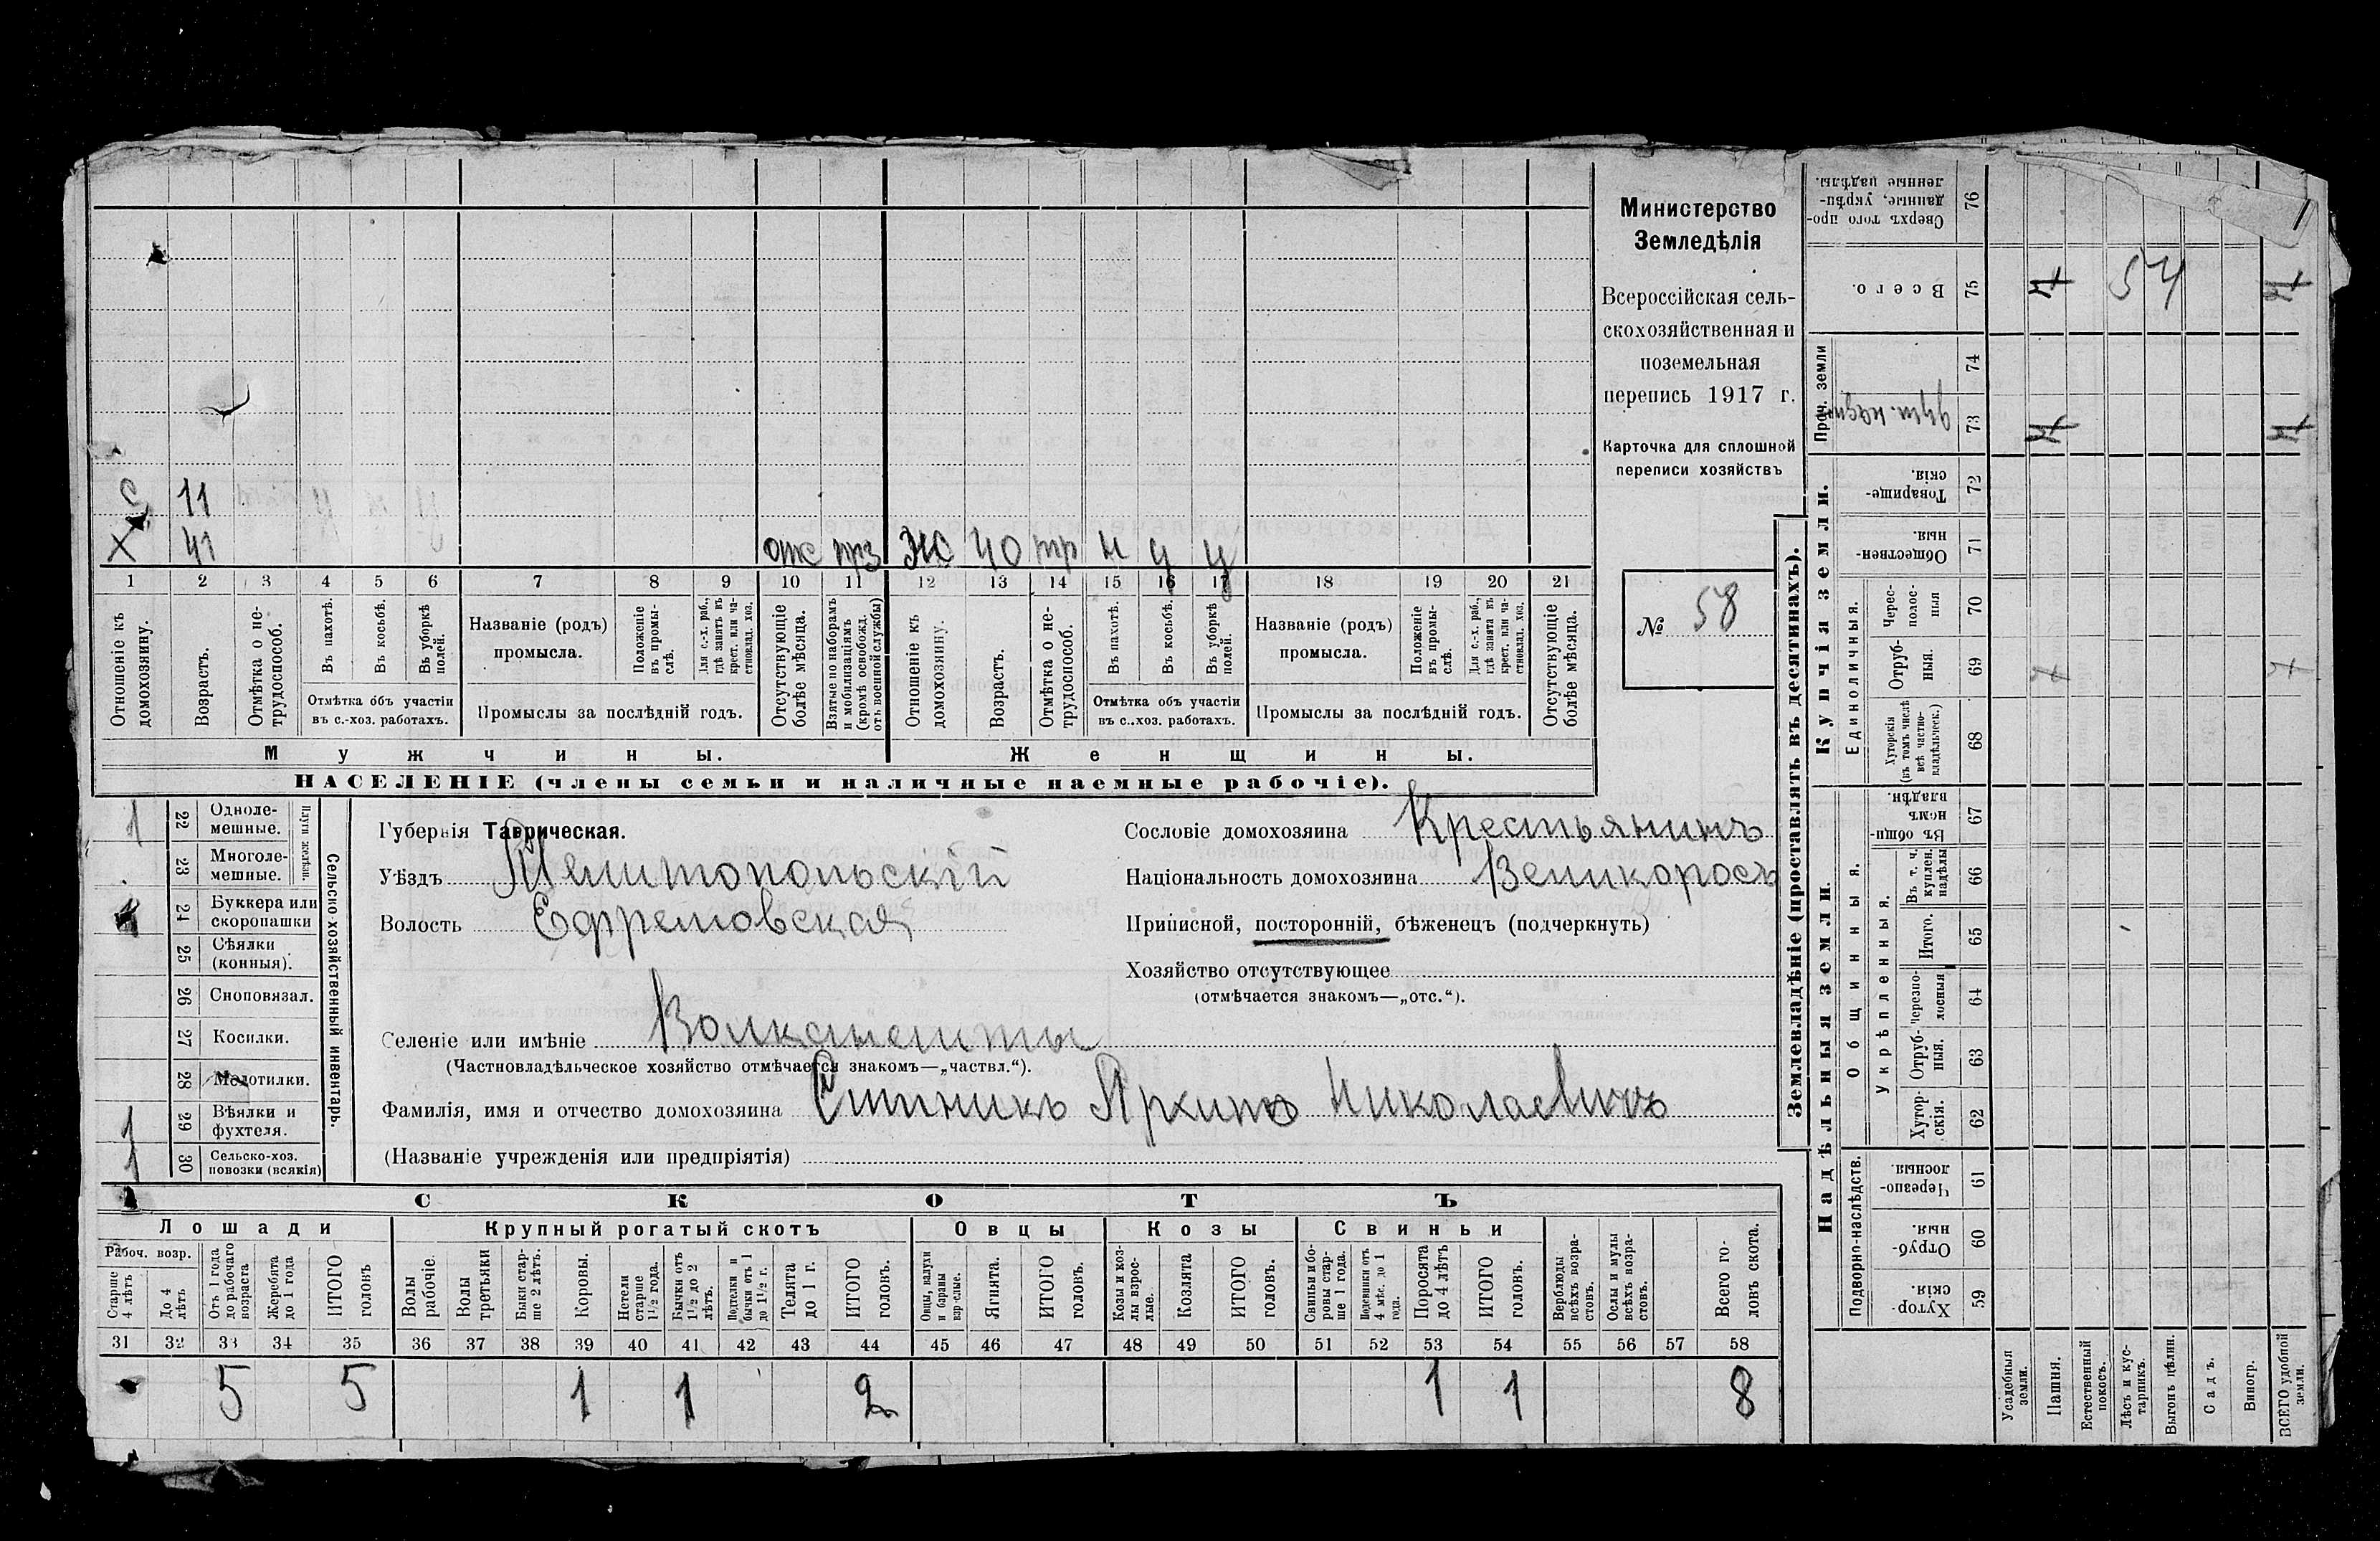 Министерство
Земледѣлія
Всероссійская сель-
скохозяйственная и
поземельная
перепись 1917 г.
Карточка для сплошной
переписи хозяйствъ
№ 58
С 11
Х 41 отс прз ЖС 40 тр н у у
1 2 3 4 5 6 7 8 9 10 11 12 13 14 15 16 17 18 19 20 21
Отношеніе къ домохозяину.
Возрастъ.
Отмѣтка о не-трудоспособ.
Въ пахотѣ.
Въ косьбѣ.
Въ уборкѣ полей.
Отмѣтка объ участіи въ с.-хоз. работахъ.
Названіе (родъ) промысла.
Положеніе въ промы-слѣ.
Для с.-х. раб., гдѣ занятъ въ крест. или ча-стновлад. хоз.
Промыслы за послѣдній годъ.
Отсутствующіе болѣе мѣсяца.
Взятые по наборамъ и мобилизаціямъ (кромѣ освобожд. отъ военной службы)
Отношеніе къ домохозяину.
Возрастъ.
Отмѣтка о не-трудоспособ.
Въ пахотѣ.
Въ косьбѣ.
Въ уборкѣ полей.
Отмѣтка объ участіи въ с..хоз. работахъ.
Названіе (родъ) промысла.
Положеніе въ промы-слѣ.
Для с.-х. раб., гдѣ занята въ крест. или ча-стновлад. хоз.
Промыслы за послѣдній годъ.
Отсутствующіе болѣе мѣсяца.
Мужчины. Женщины.
НАСЕЛЕНІЕ (члены семьи и наличные наемные рабочіе).
1 22 Одноле-мешные.
23 Многоле-мешные.
Плуги желѣзн.
24 Буккера или скоропашки
25 Сѣялки (конныя).
26 Сноповязал.
27 Косилки.
28 Молотилки.
1 29 Вѣялки и фухтеля.
1 30 Сельско-хоз. повозки (всякія)
Сельско-хозяйственный инвентарь.
Губернія Таврическая.
Уѣздъ Мелитопольскій
Волость Ефремовская
Селеніе или имѣніе Волканешты
(Частновладѣльческое хозяйство отмѣчается знакомъ—„частвл.“).
Фамилія, имя и отчество домохозяина Архипъ Николаевичъ
(Названіе учрежденія или предпріятія)
Сословіе домохозяина Крестьянинъ
Національность домохозяина Великоросъ
Приписной, посторонній, бѣженецъ (подчеркнуть)
Хозяйство отсутствующее
(отмѣчается знакомъ—„отс.“).
СКОТЪ
Лошади Крупный рогатый скотъ Овцы Козы Свиньи
Рабоч. возр.
Старше 4 лѣтъ
До 4 лѣтъ
Отъ 1 года до рабочаго возраста
Жеребята до 1 года
ИТОГО головъ
Волы рабочіе.
Волы третьяки
Быки стар-ше 2 лѣтъ.
Коровы.
Нетели старше 1½ года.
Бычки отъ 1½ до 2 лѣтъ.
Подтелки и бычки отъ 1 до 1½ г.
Телята до 1 г.
ИТОГО головъ.
Овцы, валухи и бараны взрослые.
Ягнята.
ИТОГО головъ.
Козы и коз-лы взрос-лые.
Козлята
ИТОГО головъ.
Свиньи и бо-ровы стар-ше 1 года.
Подсвинки отъ 4 мѣс. до 1 года.
Поросята до 4 лѣтъ
ИТОГО головъ.
Верблюды всѣхъ возра-стовъ.
Ослы и мулы всѣхъ возра-стовъ.
Всего го-ловъ скота.
31 32 33 34 35 36 37 38 39 40 41 42 43 44 45 46 47 48 49 50 51 52 53 54 55 56 57 58
5 5 1 1 2 1 1 8
Землевладѣніе (проставлять въ десятинахъ).
Купчія земли.
Надѣльныя земли.
Сверхъ того про-данные, укрѣп-ленные надѣлы. 76
Всего. 75 54
Проч. земли 74
73
Товарище-скія. 72
Обществен-ныя. 71
Единоличныя.
Черес-полос-ныя 70
Отруб-ныя. 69
Хуторскія (въ томъ числѣ всѣ частно-владѣльческ.) 68
Общинныя.
Въ общи-номъ владѣн. 67
Укрѣпленныя.
Въ т. ч. куплен. надѣлы 66
Итого. 65
Черезпо-лосныя 64
Отруб-ныя. 63
Хутор-скія. 62
Подворно-наслѣдств.
Черезпо-лосныя. 61
Отруб-ныя. 60
Хутор-скія. 59
Усадебныя земли.
Пашня.
Естественный покосъ.
Лѣсъ и кус-тарникъ.
Выгонъ цѣлин.
Садъ.
Виногр.
ВСЕГО удобной земли.